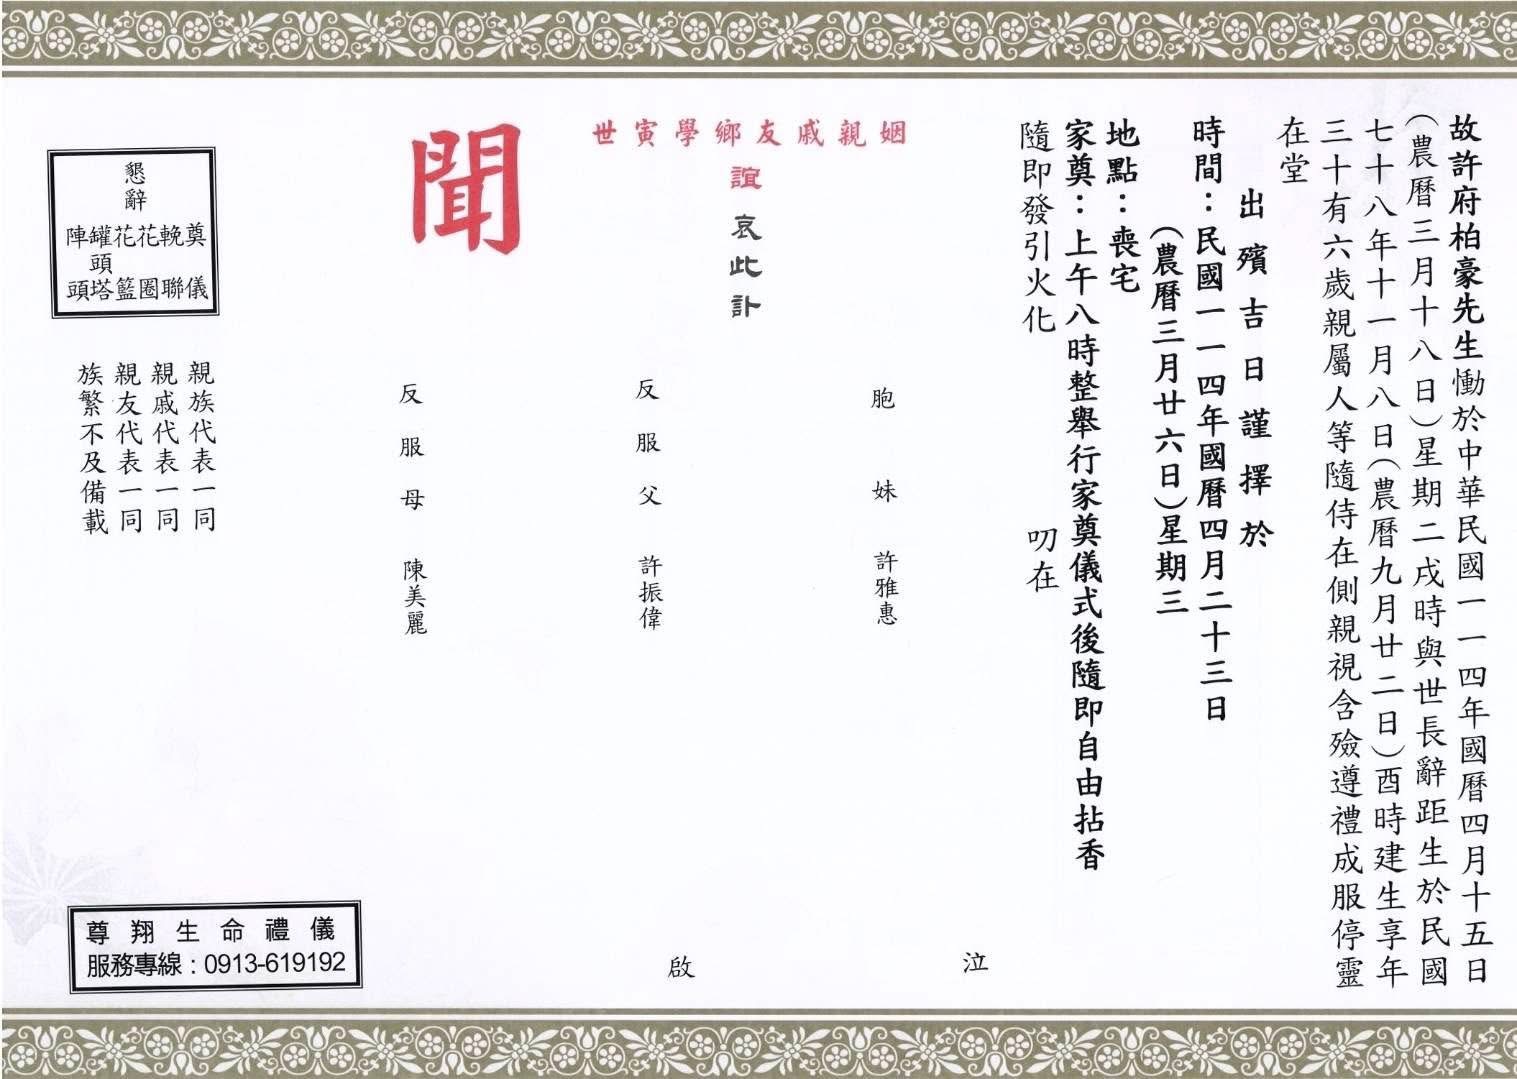 故許府柏豪先生慟於中華民國一一四年國曆四月十五日
（農曆三月十八日）星期二戌時與世長辭距生於民國
七十八年十一月八日（農曆九月廿二日）酉時建生享年
三十有六歲親屬人等隨侍在側親視含殮遵禮成服停靈
在堂
出殯吉日謹擇於
時間：民國一一四年國曆四月二十三日
（農曆三月廿六日）星期三
地點：喪宅
家奠：上午八時整舉行家奠儀式後隨即自由拈香
隨即發引火化
叨在
姻親戚友鄉學寅世
誼
哀此訃
聞
胞妹 許雅惠
反服父 許振偉
反服母 陳美麗
泣
啟
懇辭
奠儀
輓聯
花圈
花籃
罐頭塔
陣頭
親族代表一同
親戚代表一同
親友代表一同
族繁不及備載
尊翔生命禮儀
服務專線：0913-619192